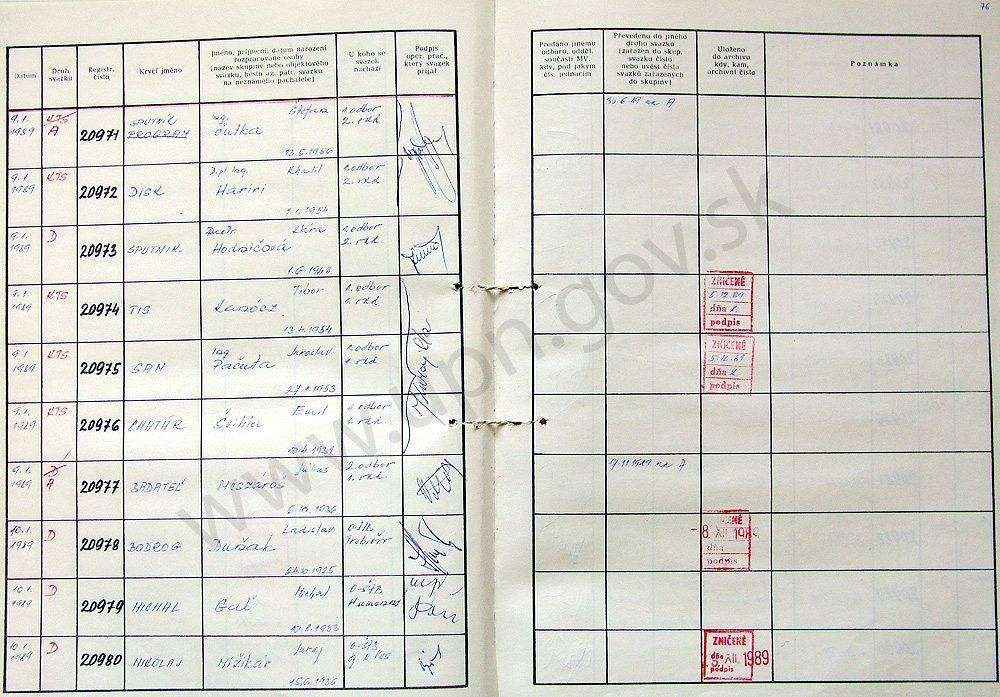 76
Datum
Druh svazku
Registr. číslo
Krycí jméno
Jméno, příjmení, datum narození
rozpracované osoby
(název skupiny nebo objektového
svazku, heslo ag. pátr. svazku
na neznámého pachatele)
U koho se
svazek
nachází
Podpis
oper. prac.,
který svazek
přijal
Předáno jinému
odboru, odděl.
součásti MV,
kdy, pod jakým
čís. jednacím
Převedeno do jiného
druhu svazku
(zařazen do skup.
svazku číslo
nebo uvést čísla
svazků zařazených
do skupiny)
Uloženo
do archivu
kdy, kam,
archivní číslo
Poznámka
9.1. 1989 KTS A 20971 SPUTNIK PROGRAM Ing. Štefan Čutka 13.5.1956 1. odbor 2. 30.6.89 na A
9.1 1989 KTS 20972 DISK Dipl Ing. Khalil Hariri 1.1.1954 1. odbor 2.
9.1. 1989 D 20973 SPUTNIK Klára Hodpičová 1.6.1948 1. odbor 2.
1989 KTS 20974 TIS Tibor 13.4.1954 1. odbor 1. ZNIČENÉ 5.12.89 dňa podpis
9.1 1989 KTS 20975 SAN Ing Jaroslav Pačuta 27.1.1953 1. odbor 1. ZNIČENÉ 5.12.89 dňa podpis
9.1. 1989 KTS 20976 CHATÁR Emil Švihla 10.4.1931 odbor
9.1. 1989 D A 20977 BÁDATEĽ Július Mészáros 6.10.1936 2. odbor 1. 17.11.1989 na A
10.1. 1989 D 20978 BODROG Ladislav Duržák 24.10.1925 O-ŠtB 8. XII. 1989 dňa podpis
10.1 1989 D 20979 MICHAL Michal Gaľ 1933 O-ŠTB Humenné
10.1 1989 D 20980 NIKOLAJ Juraj Mižikár 15.6.1936 O-ŠtB ZNIČENÉ dňa XII. 1989 podpis
www.upn.gov.sk